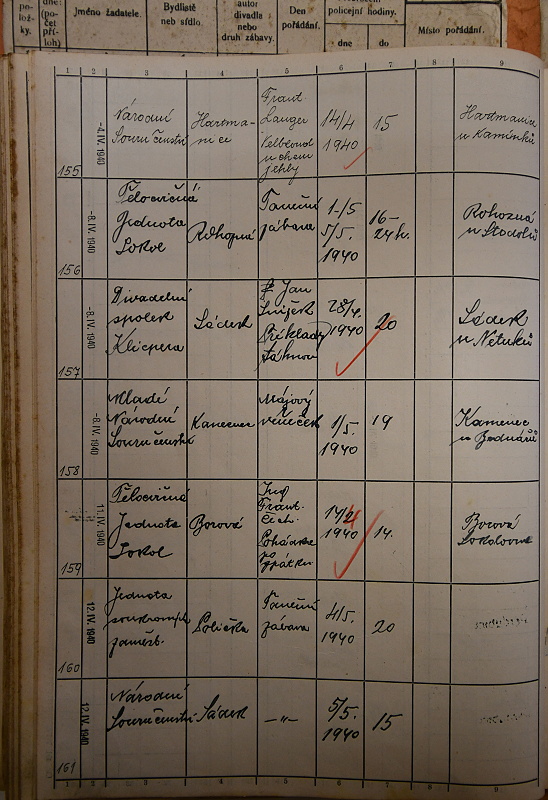 po-
lož-
ky.
dne:
(po-
čet
pří-
loh)
Jméno žadatele.
Bydliště
neb sídlo.
autor
divadla
nebo
druh zábavy.
Den
pořádání.
policejní hodiny.
dne
do
Místo pořádání.
1 2 3 4 5 6 7 8 9
155
-4. IV. 1940
Národní
Souručenství
Hartma-
nice
Frant.
Langer
Velbloud
uchem
jehly
14/4
1940
15
Hartmanice
u Kamínků
156
-8. IV. 1940
Tělocvičná
Jednota
Sokol
Rohozná
Taneční
zábava
1-/5
5/5.
1940
16-
24 h.
Rohozná
u Stodolů
157
-8. IV. 1940
Divadelní
spolek
Klicpera
Sádek
Jan
Snížek
28/4.
1940
20
Sádek
u Netuků
158
-8. IV. 1940
Mladé
Národní
Souručenství
Kamenec
Májový
věneček
1/5.
1940
19
Kamenec
u Bednářů
159
11. IV. 1940
Tělocvičná
Jednota
Sokol
Borová
Frant.
Čech.
Pohádka
po
zpátku
14/4
1940
14.
Borová
Sokolovna
160
12. IV. 1940
Jednota
soukromých
zaměstn.
Polička
Taneční
zábava
4/5.
1940
20
161
12. IV. 1940
Národní
Souručenství
Sádek
-"-
5/5.
1940
15
1 2 3 4 5 6 7 8 9